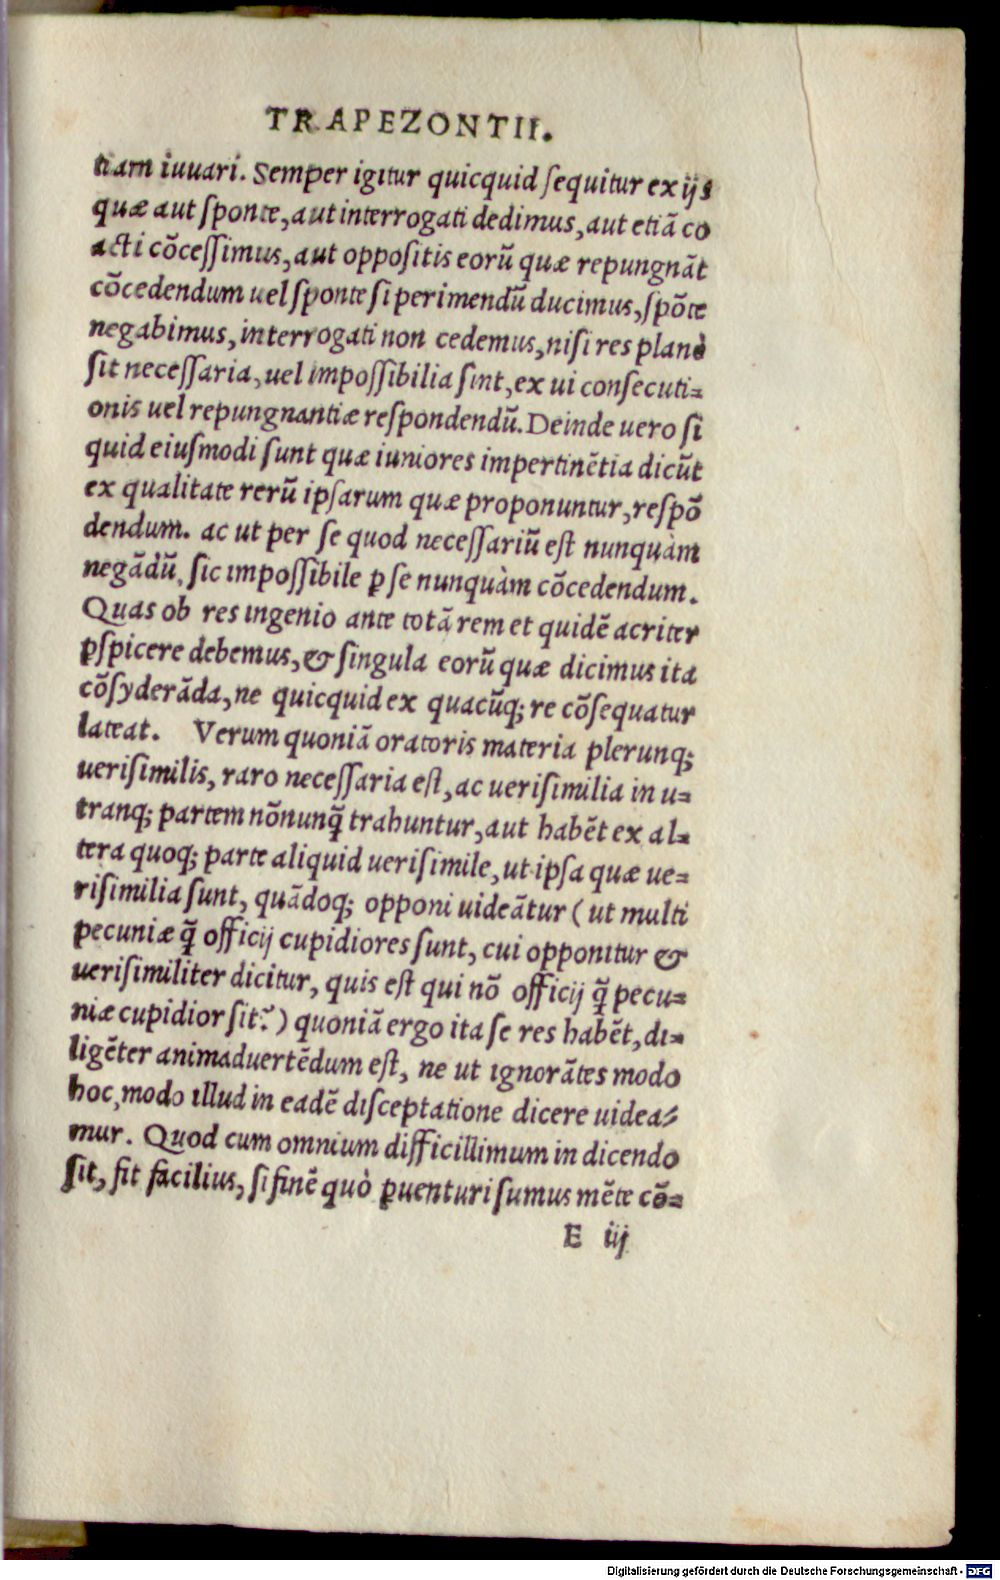 TRAPEZONTII.
tiam iuuari. Semper igitur quicquid ſequitur ex ijs
quæ aut ſponte, aut interrogati dedimus, aut etiã co
acti cõceſſimus, aut oppoſitis eorũ quæ repungnãt
cõcedendum uel ſponte ſi perimendũ ducimus, ſpõte
negabimus, interrogati non cedemus, niſi res planè
ſit neceſſaria, uel impoſſibilia ſint, ex ui conſecuti-
onis uel repungnantiæ reſpondendũ. Deinde uero ſi
quid eiuſmodi ſunt quæ iuniores impertinẽtia dicũt
ex qualitate rerũ ipſarum quæ proponuntur, reſpõ
dendum. ac ut per ſe quod neceſſariũ eſt nunquàm
negãdũ, ſic impoſſibile ꝑ ſe nunquàm cõcedendum.
Quas ob res ingenio ante totã rem et quidẽ acriter
ꝑſpicere debemus, & ſingula eorũ quæ dicimus ita
cõſyderãda, ne quicquid ex quacũq; re cõſequatur
lateat. Verum quoniã oratoris materia plerunq;
ueriſimilis, raro neceſſaria eſt, ac ueriſimilia in u-
tranq; partem nõnunq̃ trahuntur, aut habẽt ex al-
tera quoq; parte aliquid ueriſimile, ut ipſa quæ ue-
riſimilia ſunt, quãdoq; opponi uideãtur ( ut multi
pecuniæ q̃ officij cupidiores ſunt, cui opponitur &
ueriſimiliter dicitur, quis eſt qui nõ officij q̃ pecu-
niæ cupidior ſit? ) quoniã ergo ita ſe res habẽt, di-
ligẽter animaduertẽdum eſt, ne ut ignorãtes modo
hoc, modo illud in eadẽ diſceptatione dicere uidea-
mur. Quod cum omnium difficillimum in dicendo
ſit, fit facilius, ſi finẽ quò ꝑuenturi ſumus mẽte cõ-
E iij
Digitalisierung gefördert durch die Deutsche Forschungsgemeinschaft - DFG